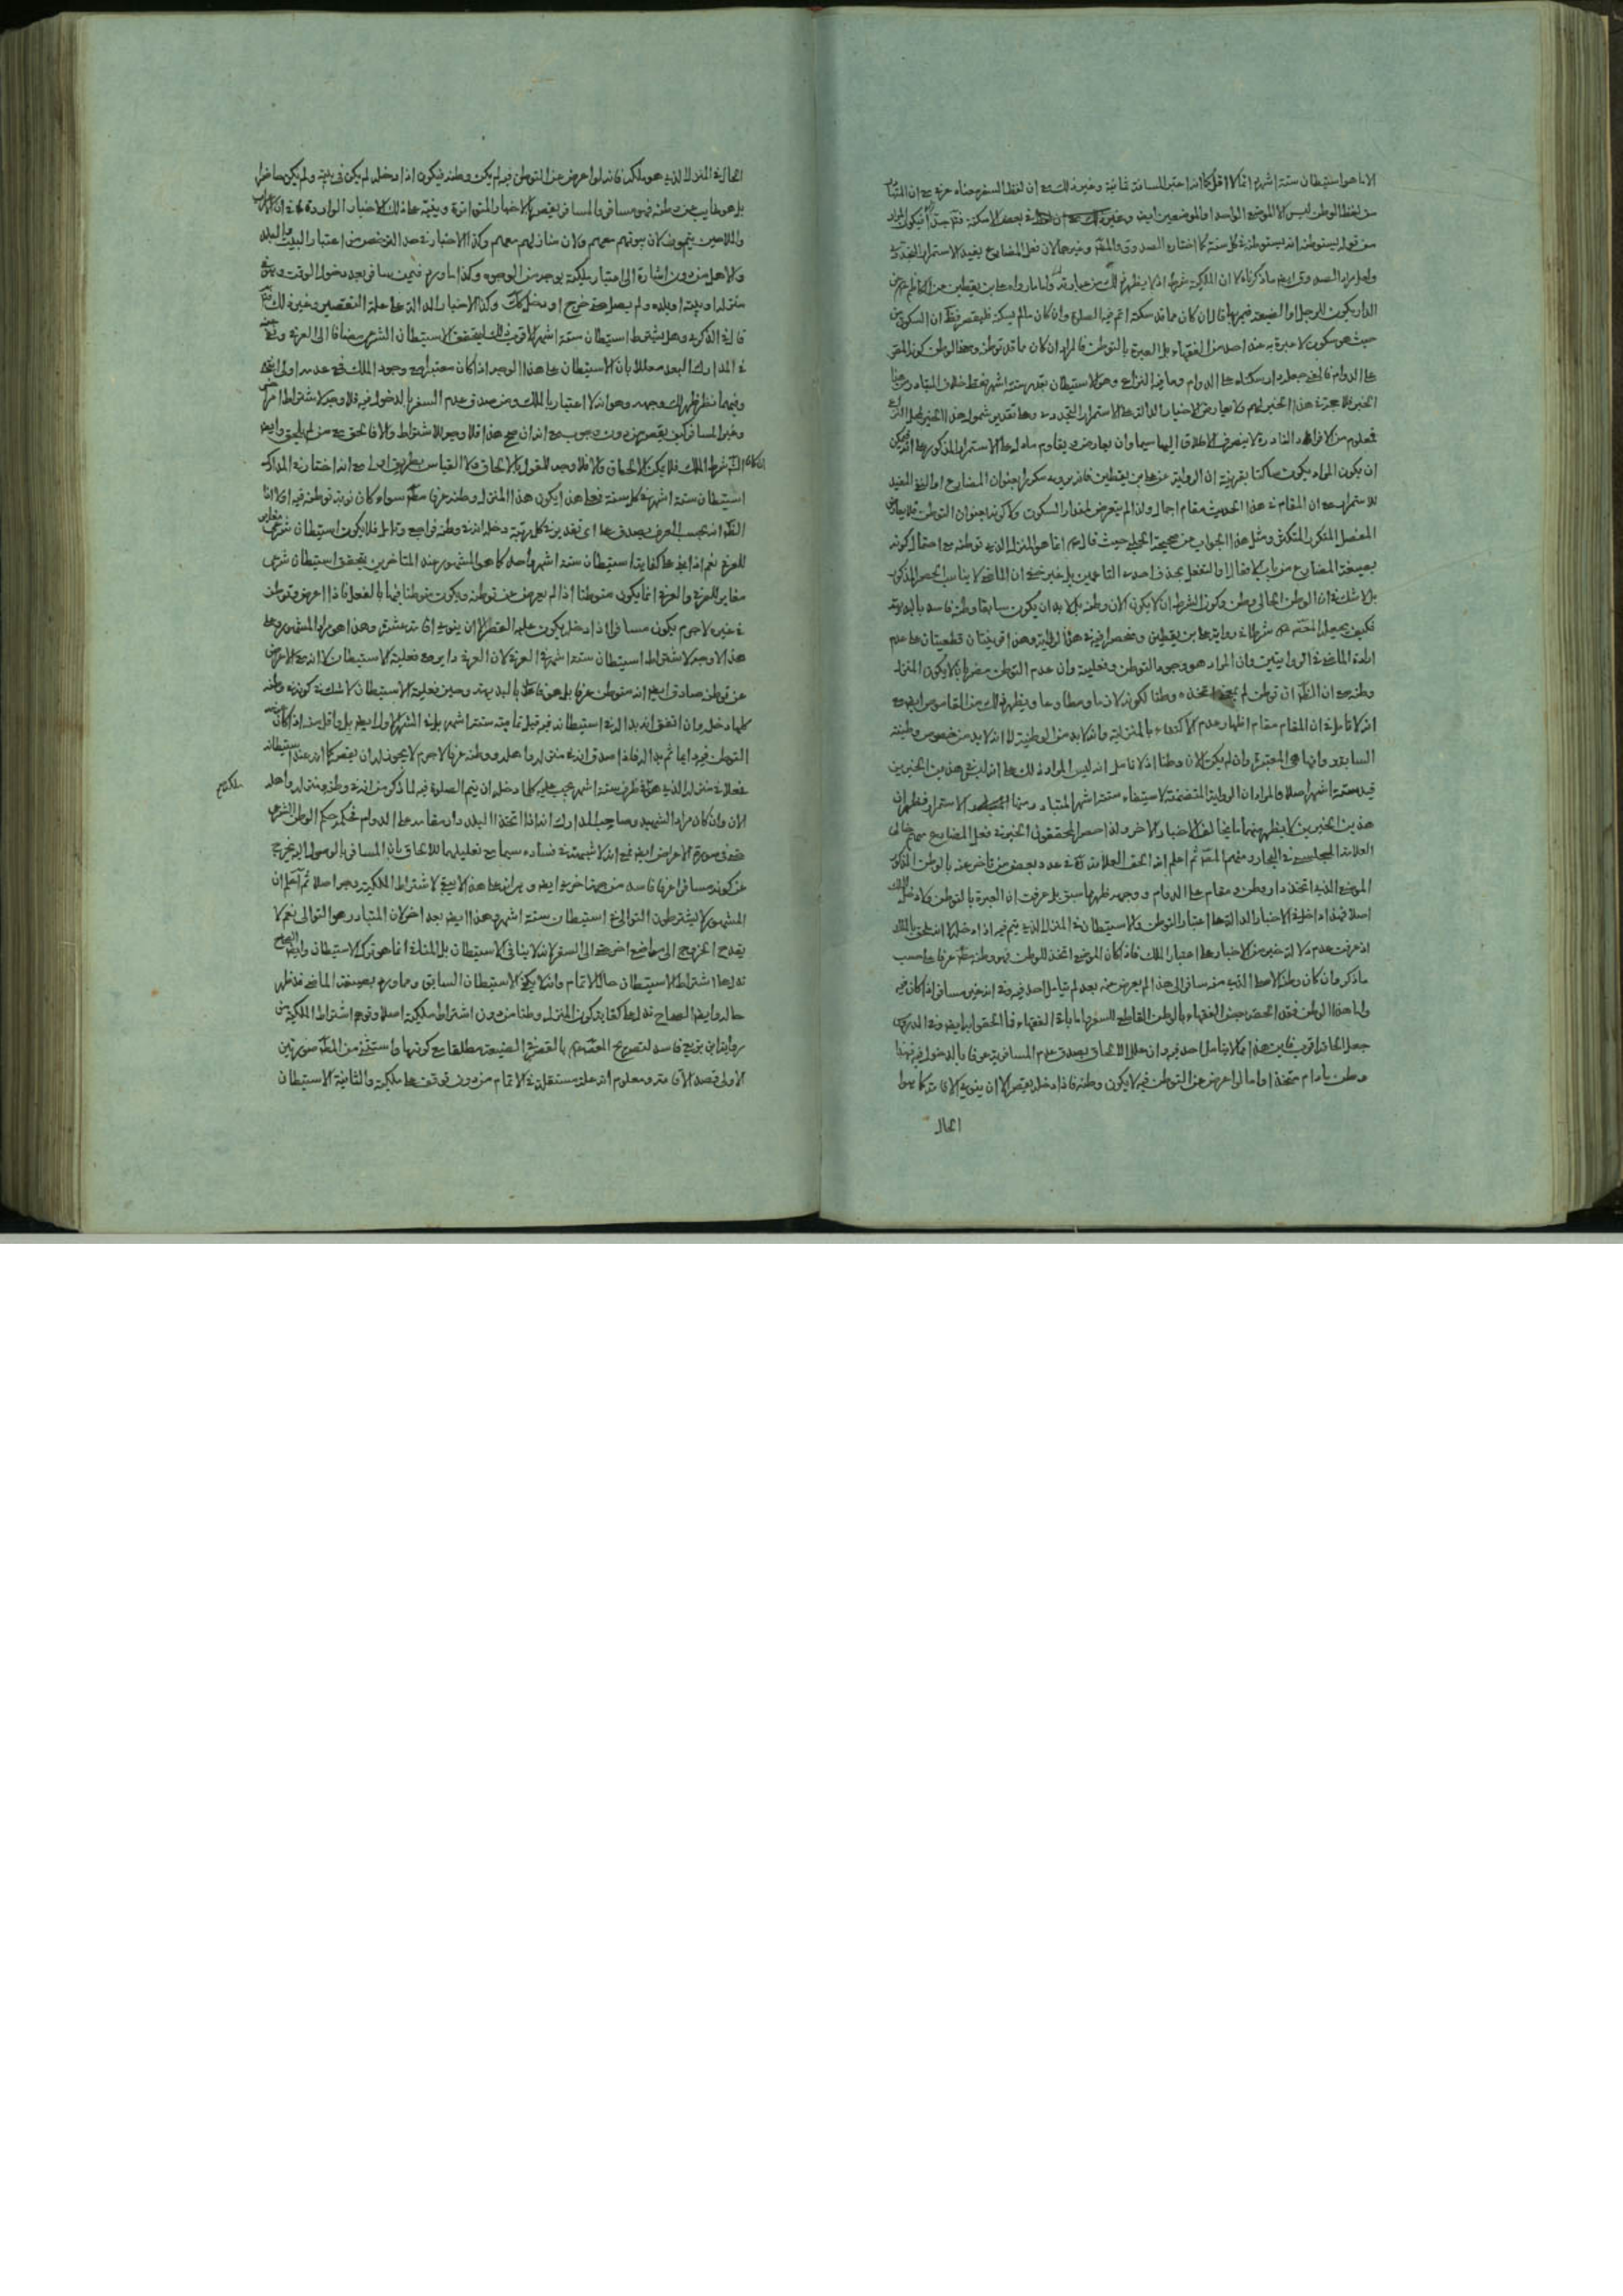 الا ما هو استيطان ستة اشهر اما الاقل كما انه اعتبر المسافة ثمانية وغير ذلك مع ان لفظ السفر معناه عرفى مع ان المتبادر
من لفظ الوطن ليس الا الموضع الواحد او الموضعين ايض وغير ذلك بعض الامكنة
من قوله يستوطنه انه يستوطنه فى كل سنة كما اختاره الصدوق والمقدس وغيرهما لان فعل المضارع يفيد الاستمرار التجددى
ولعل مراد الصدوق ايض ما ذكرناه لا ان الملكية شرط اذ لا يظهر ذلك من عبارته واما ما رواه على بن يقطين عن الكاظم
الدار يكون للرجل او الضيعة فيمر بها قال ان كان مما قد سكنه اتم فيه الصلوة وان كان مما لم يسكنه فليقصر ان السكون من
حيث هو سكون لا عبرة به عند احد من الفقهاء بل العبرة بالتوطن فالمراد ان كان مما قد توطنه ومعنى الوطن كونه المقر
على الدوام فالذى جعله دار سكناه على الدوام وما فيه النزاع وهو الاستيطان بقدر ستة اشهر فقط خلاف المتبادر من هذا
الخبر فلا حجة فى هذا الخبر لهم ولا يعارض الاخبار الدالة على الاستمرار التجددى وعلى تقدير شمول هذا الخبر لمحل النزاع
فمعلوم من الافراد النادرة لا ينصرف الاطلاق اليها سيما وان يعارض و يقاوم ما دل على الاستمرار المذكور
ان يكون المراد يكون ساكنا بقرينة ان الرواية عن على بن يقطين فانه يرويه مكررا بعنوان المضارع او الذى المفيد
للاستمرار مع ان المقام فى هذا الحديث مقام اجمال ولذا لم يتعرض لمقدار السكون ولا كونه بعنوان التوطن فلا يعارض
المفصل المتكرر المتكثر ومثل هذا الجواب عن صحيحة الحلبى حيث قال انما هو المنزل الذى توطنه مع احتمال كونه
بصيغة المضارع من باب الافعال او التفعل بحذف احدى التاءين بل غير خفى ان الماضى لا يناسب الحصر المذكور
بل لا شك فى ان الوطن الحالى وطن وكون الشرط ان لا يكون الان وطنه بل لا بد ان يكون سابقا وطنه فاسد بالبديهة
فكيف يجعل المعصوم شرطا فى رواية على بن يقطين ومنحصرا فيه فى هذه الرواية وهذا قرينتان قطعيتان على عدم
ارادة الماضى فى الروايتين وان المراد هو وجود التوطن وفعليته وان عدم التوطن مضر بان لا يكون المنزل
وطنه مع ان الظاهر ان توطن لم يجئ اتخذه وطنا لكونه لازما ومطاوعا ويظهر ذلك من القاموس ايض مع
انه لا تأمل فى ان المقام مقام اظهار عدم الاكتفاء بالمنزلية وانه لا بد من الوطنية لا انه لا بد من خصوص وطنيته
السابقة وانها هى المعتبرة وان لم يكن الان وطنا اذ لا تامل انه ليس المراد ذلك على انه ليس فى هذين الخبرين
قيد ستة اشهر اصلا والمراد ان الرواية المتضمنة لاستيفاء ستة اشهر المتبادر منها الاستمرار فظهر ان
هذين الخبرين لا يظهر منهما ما يخالف الاخبار الاخر ولذا حصر المحققون الخبر فى فعل المضارع منهم خالى
العلامة المجلسى فى البحار ومنهم المقدس ثم اعلم انه الحق العلامة فى عدد بعض من تاخر عنه بالوطن المذكور
الموضع الذى اتخذ دار وطن ومقام على الدوام ووجهه ظهر مما سبق بل عرفت ان العبرة بالتوطن ولا دخل للملك
اصلا فهذا داخل فى الاخبار الدالة على اعتبار التوطن والاستيطان فى المنزل الذى يتم فيه اذا دخل لا انه يلحق بالملك
اذ عرفت عدم دلالة خبر من الاخبار على اعتبار الملك فاذا كان الموضع اتخذ للوطن فهو وطنه عرفا على حسب
ما ذكر وان كان وطنه الاصلى الذى منه سافر الى هذا لم يعرض عنه بعد لم يتامل احد فيه وفى انه غير مسافر اذا كان فيه
واما هذا الوطن فقد انحصر حيث الفقهاء بالوطن القاطع للسفر اما باقى الفقهاء فالحقوا به ايض وفى الدروس
جعل الحاقه اقرب فليس هذا مما لا يتامل احد فيه وان علل الالحاق بصدق عدم المسافرية عرفا بالدخول فيه فهذا
وطن مادام متخذا واما لو اعرض عن التوطن فيه لا يكون وطنه فاذا دخله يقصر الا ان ينوى الاقامة كما هو
الحال
الحال فى المنزل الذى هو ملكه فانه لو اعرض عن التوطن فيه لم يكن وطنه فيكون اذا دخله لم يكن فى بيته ولم يكن حاضرا
بل هو غايب عن وطنه فهو مسافر والمسافر يقصر بالاخبار المتواترة وينبه على ذلك الاخبار الواردة فى ان الاعراب
والملاحين يتمون لان بيوتهم معهم ولان منازلهم معهم وكذا الاخبار فى حد الترخص من اعتبار البيت والبلد
والاهل من دون اشارة الى اعتبار ملكية بوجه من الوجوه وكذا ما ورد فيمن سافر بعد دخول الوقت وهو فى
منزله او بيته او بلده ولم يصل حتى خرج او دخل وكذا الاخبار الدالة على علة التقصير وغير ذلك
قال فى الذكرى وهل يشترط استيطان ستة اشهر الاقرب ذلك ليتحقق الاستيطان الشرعى مضافا الى العرفى ونفى عنه
فى المدارك البعد معللا بان الاستيطان على هذا الوجه اذا كان معتبرا مع وجود الملك فمع عدمه اولى انتهى
وفيهما نظر ظهر لك وجهه وهو انه لا اعتبار بالملك ومن صدق عدم السفر بالدخول فيه فلا وجه لاشتراط امر آخر
وغير المسافر كيف يقصر من دون وجوب مع انه ان صح هذا فلا وجه للاشتراط والا فالحق مع من لم يلحق وايض
ان كان التمام شرط الملك فلا يمكن الالحاق والا فلا وجه للقول بالالحاق ولا القياس بطريق اولى مع انه اختار فى المدارك
استيطان ستة اشهر فى كل سنة فعلى هذا يكون هذا المنزل وطنه عرفا مطلقا سواء كان نوبة توطنه فيه ام لا اذ
الظاهر انه بحسب العرف يصدق على اى تقدير فى كل مرتبة دخل انه فى وطنه فراجع وتامل فلا يكون استيطان شرعى مغاير
للعرفى نعم اذا بنى على كفاية استيطان ستة اشهر باصله كما هو المشهور عند المتاخرين يتحقق استيطان شرعى
مغاير للعرفى والعرفى انما يكون متوطنا اذا لم يعرض عن توطنه ويكون متوطنا فيها بالفعل فاذا اعرض وتوطن
فى غيره لا جرم يكون مسافرا اذا دخل يكون عليه القصر الا ان ينوى اقامة عشرة وهذا هو مراد المشهور وعلى
هذا لا وجه لاشتراط استيطان ستة اشهر فى العرفى لان العرفى داير مع فعلية الاستيطان لا انه مع الاعراض
عن توطنه صادق ايض انه متوطن عرفا بل هو غلط بالبديهة وحين فعلية الاستيطان لا شك فى كونه فى وطنه
كلما دخل وان اتفق انه بدا له فى استيطانه فيه قبل تمامية ستة اشهر بل فى الشهر الاول ايض بل واقل منه اذ كان
التوطن فيه دايما ثم بدا له فاذا صدق انه فى منزله واهله ووطنه عرفا لا جرم لا يجوز له ان يقصر كما انه عند استيطانه
فعلا فى منزله الذى هو ملكه ستة اشهر يجب عليه كلما دخله ان يتم الصلوة فيه لما ذكر من انه فى وطنه ومنزله واهله
الان وان كان مراد الشهيد وصاحب المدارك انه اذا اتخذ البلد دار مقامه على الدوام فحكمه حكم الوطن الشرعى
حتى فى صورة الاعراض ايض فمع انه لا شبهة فى فساده سيما مع تعليلهما للالحاق بان المسافر بالوصول اليه يخرج
عن كونه مسافرا عرفا فاسد من جهة اخرى ايض وهى انه على هذا لا يبقى لاشتراط الملكية وجه اصلا ثم اعلم ان
المشهور لا يشترطون التوالى فى استيطان ستة اشهر وهذا ايض بعد اخر لان المتبادر هو التوالى نعم لا
يقدح الخروج الى مواضع اخر حتى الى السفر لانه لا ينافى الاستيطان بل المنافى انما هو ترك الاستيطان وايض الصحاح
تدل على اشتراط الاستيطان حال الاتمام وانه لا يكفى الاستيطان السابق وما ورد بصيغة الماضى قد ظهر
حاله وايض الصحاح تدل على كفاية كون المنزل وطنا من دون اشتراط ملكية اصلا وتوهم اشتراط الملكية من
رواية ابن بزيع فاسد لتصريح المعصوم بالتقصير فى الضيعة مطلقا مع كونها ملكه واستثنى من المطلق صورتين
الاولى قصد الاقامة ومعلوم انه علة مستقلة فى الاتمام من دون توقف على ملكية والثانية الاستيطان